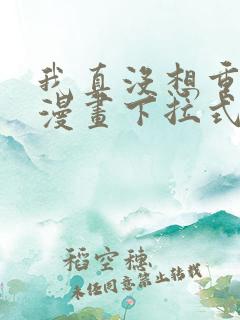 我真没想重
漫畫下拉式
稻空穗
未经同意禁止转载